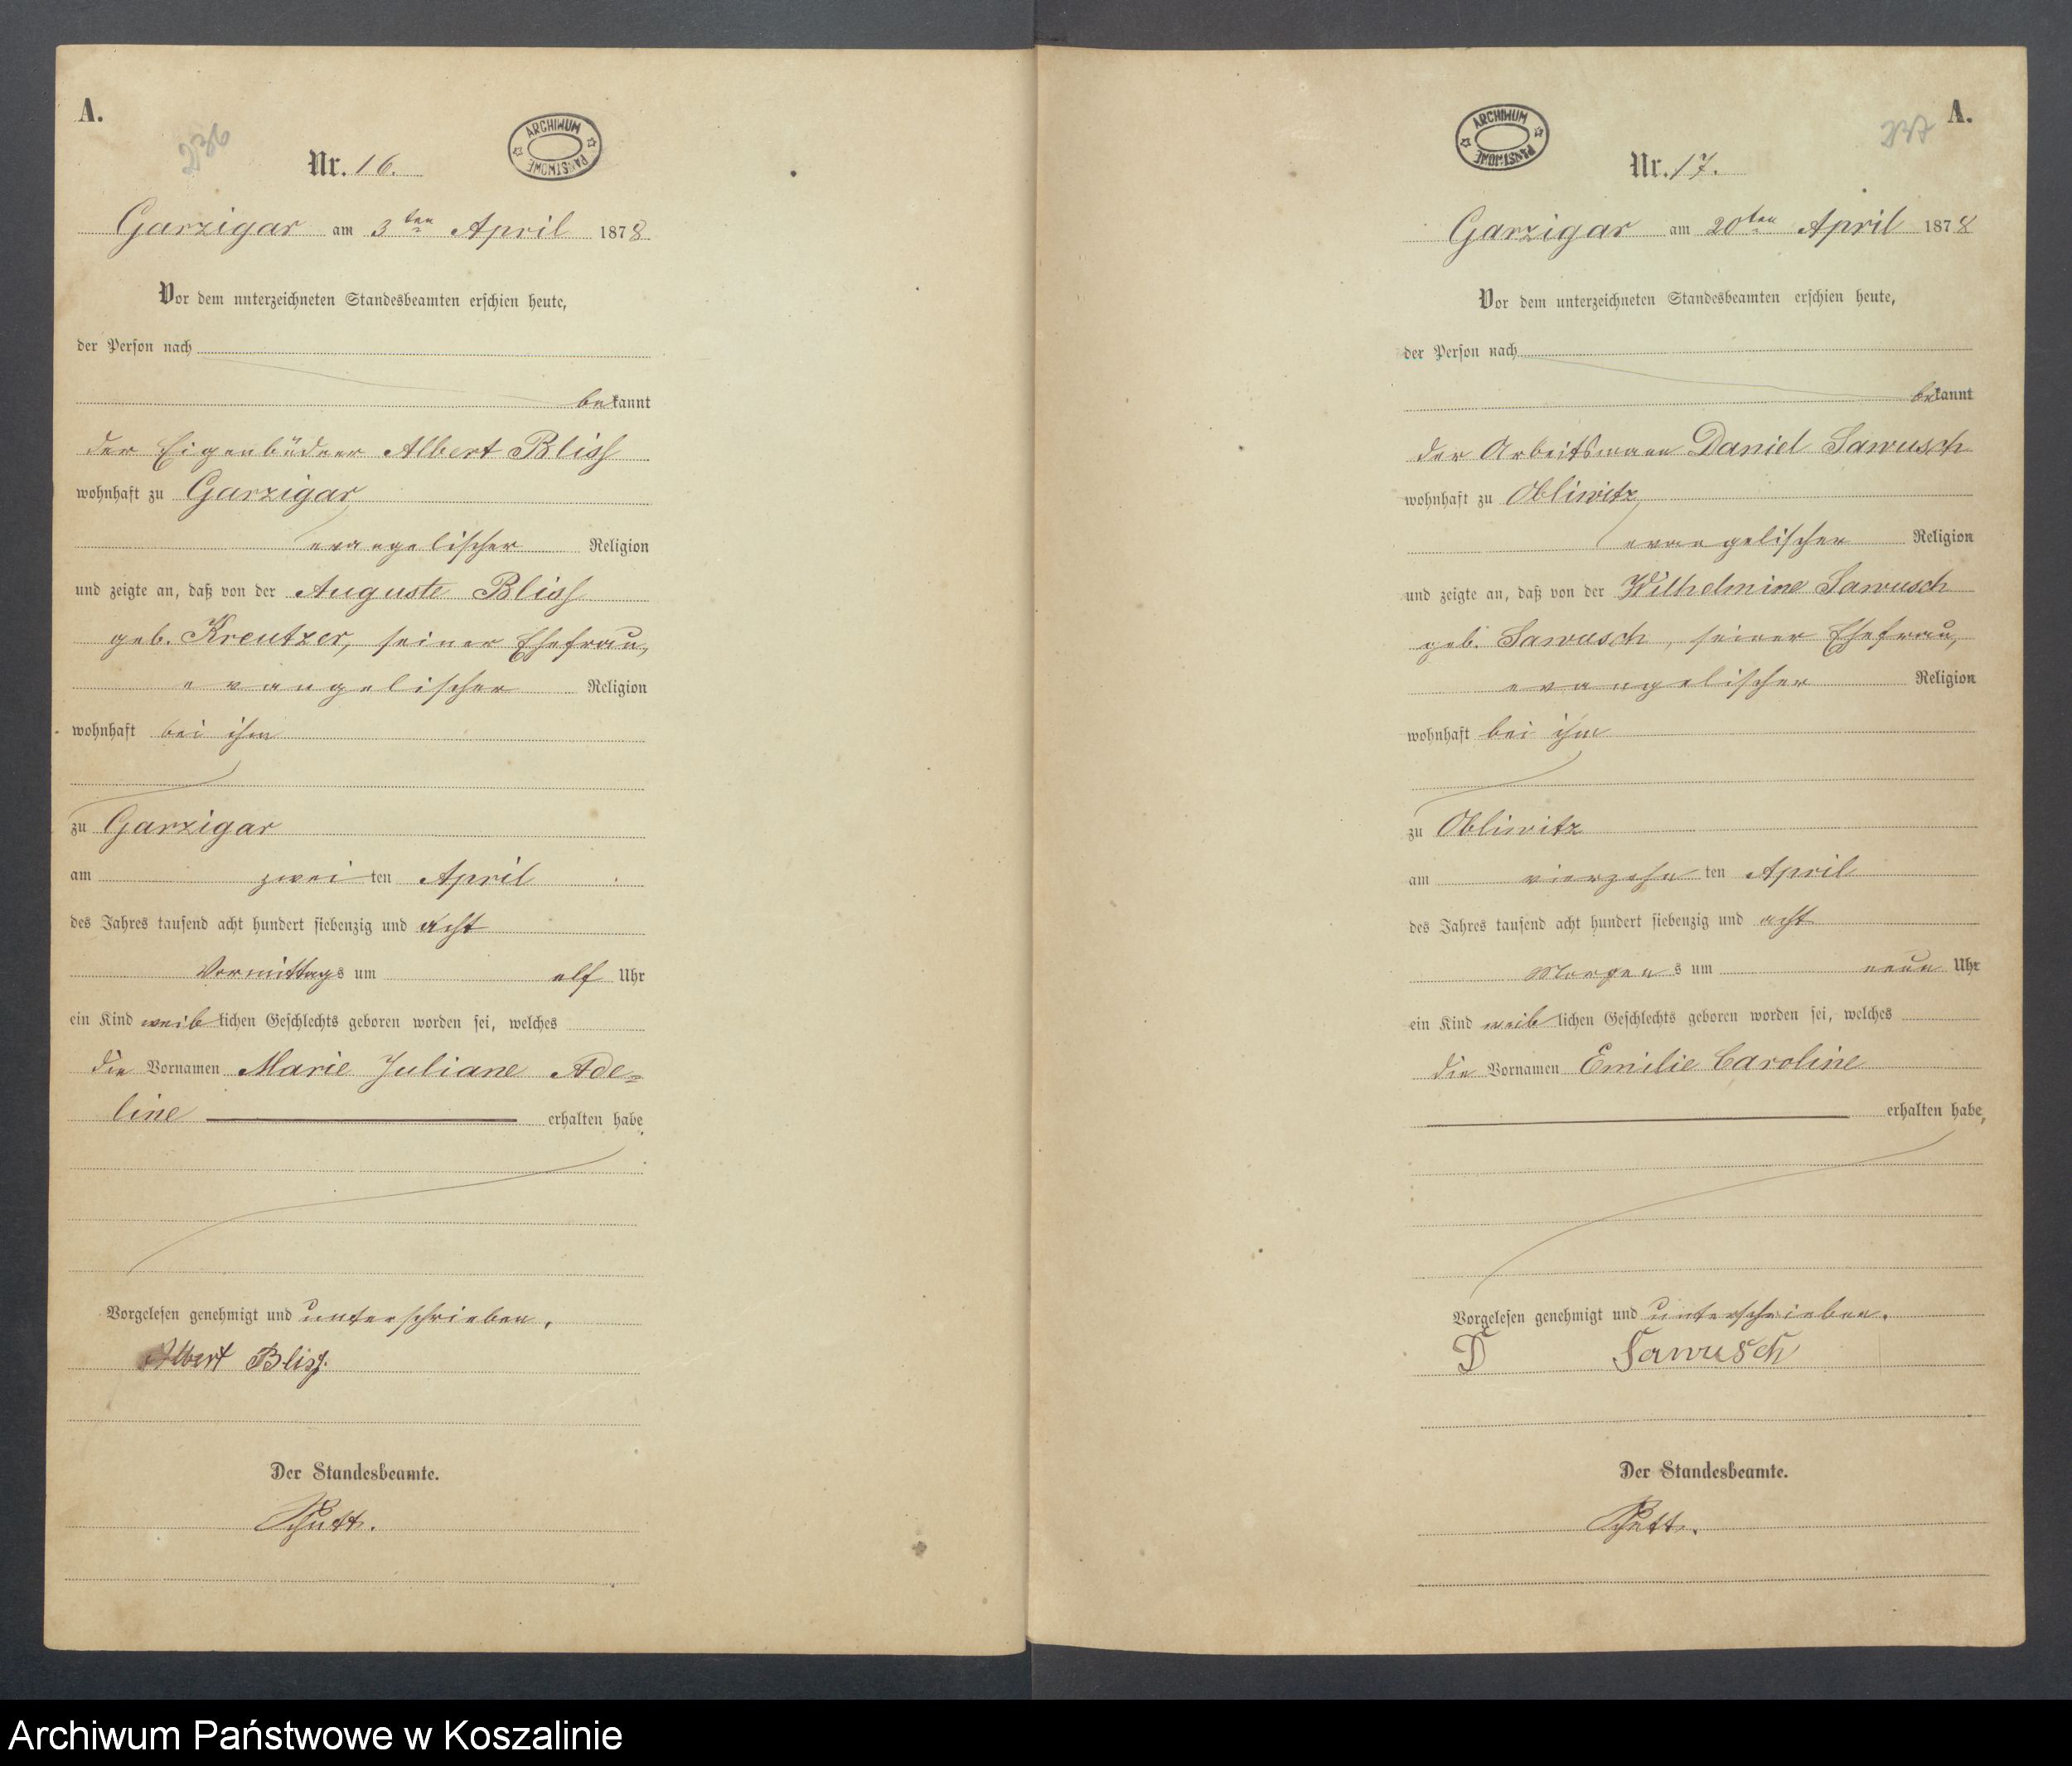 A.
236
Nr. 16.
ARCHIWUM PAŃSTWOWE
Garzigar am 3ten April 1878
Vor dem unterzeichneten Standesbeamten erschien heute,
der Person nach
bekannt
der Eigenbüdner Albert Bliss
wohnhaft zu Garzigar
evangelischer Religion
und zeigte an, daß von der Auguste Bliss
geb. Kreutzer, seiner Ehefrau,
evangelischer Religion
wohnhaft bei ihm
zu Garzigar
am zwei ten April
des Jahres tausend acht hundert siebenzig und acht
Vormittags um elf Uhr
ein Kind weiblichen Geschlechts geboren worden sei, welches
die Vornamen Marie Juliane Ade=
line erhalten habe
Vorgelesen genehmigt und unterschrieben.
Albert Bliss.
Der Standesbeamte.
A.
237
Nr. 17.
ARCHIWUM PAŃSTWOWE
Garzigar am 20ten April 1878
Vor dem unterzeichneten Standesbeamten erschien heute,
der Person nach
bekannt
der Arbeitsmann Daniel Sawusch
wohnhaft zu Obliwitz
evangelischer Religion
und zeigte an, daß von der Wilhelmine Sawusch
geb. Sawusch, seiner Ehefrau,
evangelischer Religion
wohnhaft bei ihm
zu Obliwitz
am vierzehn ten April
des Jahres tausend acht hundert siebenzig und acht
Morgens um neun Uhr
ein Kind weiblichen Geschlechts geboren worden sei, welches
die Vornamen Emilie Caroline
erhalten habe,
Vorgelesen genehmigt und unterschrieben.
D Sawusch
Der Standesbeamte.
Archiwum Państwowe w Koszalinie